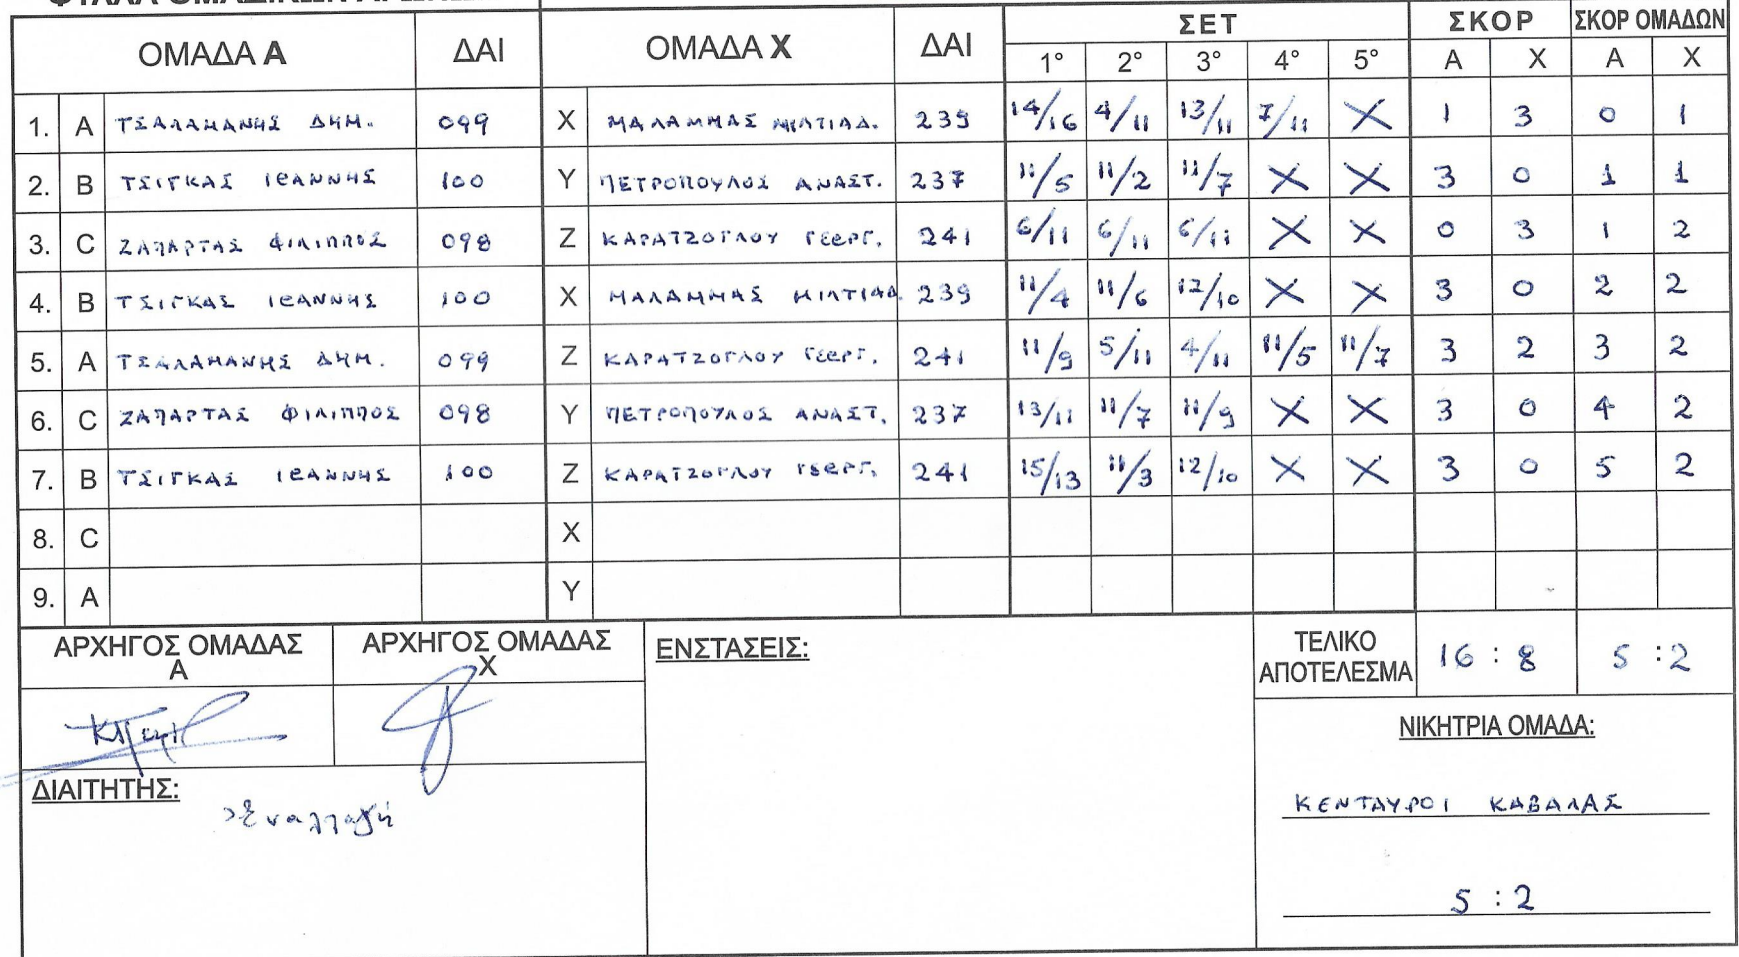 ΣΕΤ ΣΚΟΡ ΣΚΟΡ ΟΜΑΔΩΝ
ΟΜΑΔΑ Α ΔΑΙ ΟΜΑΔΑ Χ ΔΑΙ 1° 2° 3° 4° 5° Α Χ Α Χ
1. A ΤΣΑΛΑΜΑΝΗΣ ΔΗΜ. 099 X ΜΑΛΑΜΜΑΣ ΜΙΛΤΙΑΔ. 239 14/16 4/11 13/11 7/11 X 1 3 0 1
2. B ΤΣΙΓΚΑΣ ΙΩΑΝΝΗΣ 100 Y ΠΕΤΡΟΠΟΥΛΟΣ ΑΝΑΣΤ. 237 11/5 11/2 11/7 X X 3 0 1 1
3. C ΖΑΠΑΡΤΑΣ ΦΙΛΙΠΠΟΣ 098 Z ΚΑΡΑΤΖΟΓΛΟΥ ΓΕΩΡΓ. 241 6/11 6/11 6/11 X X 0 3 1 2
4. B ΤΣΙΓΚΑΣ ΙΩΑΝΝΗΣ 100 X ΜΑΛΑΜΜΑΣ ΜΙΛΤΙΑΔ. 239 11/4 11/6 12/10 X X 3 0 2 2
5. A ΤΣΑΛΑΜΑΝΗΣ ΔΗΜ. 099 Z ΚΑΡΑΤΖΟΓΛΟΥ ΓΕΩΡΓ. 241 11/9 5/11 4/11 11/5 11/7 3 2 3 2
6. C ΖΑΠΑΡΤΑΣ ΦΙΛΙΠΠΟΣ 098 Y ΠΕΤΡΟΠΟΥΛΟΣ ΑΝΑΣΤ. 237 13/11 11/7 11/9 X X 3 0 4 2
7. B ΤΣΙΓΚΑΣ ΙΩΑΝΝΗΣ 100 Z ΚΑΡΑΤΖΟΓΛΟΥ ΓΕΩΡΓ. 241 15/13 11/3 12/10 X X 3 0 5 2
8. C X
9. A Y
ΑΡΧΗΓΟΣ ΟΜΑΔΑΣ Α ΑΡΧΗΓΟΣ ΟΜΑΔΑΣ Χ ΕΝΣΤΑΣΕΙΣ: ΤΕΛΙΚΟ ΑΠΟΤΕΛΕΣΜΑ 16 : 8 5 : 2
ΝΙΚΗΤΡΙΑ ΟΜΑΔΑ:
ΔΙΑΙΤΗΤΗΣ:
ΚΕΝΤΑΥΡΟΙ ΚΑΒΑΛΑΣ
5 : 2